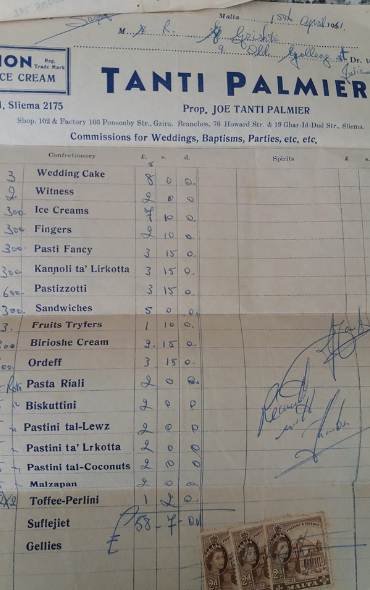 Malta 15th April 1961.
M R.
9 Old College St Dr. to
ION Reg. Trade Mark
ICE CREAM
TANTI PALMIER
Sliema 2175
Prop. JOE TANTI PALMIER
Shop. 102 & Factory 103 Ponsonby Str., Gzira. Branches, 76 Howard Str. & 19 Ghar-Id-Dud Str., Sliema.
Commissions for Weddings, Baptisms, Parties, etc. etc.
Confectionery £. s. d. Spirits £ s.
3 Wedding Cake 8 0 0.
2 Witness 2 0 0
300 Ice Creams 7 10 0
300 Fingers 2 10 0.
300 Pasti Fancy 3 15 0.
300 Kannoli ta' Lirkotta 3 15 0.
600 Pastizzotti 3 15 0.
300 Sandwiches 5 0 0
3. Fruits Tryfers 1 10 0.
00 Birioshe Cream 2 15 0.
00 Ordeff 3 15 0.
Pasta Riali 2 0 0.
Biskuttini 2 0 0
Pastini tal-Lewz 2 0 0
Pastini ta' Lrkotta 2 0 0
Pastini tal-Coconuts 2 0 0
Malzapan 2 0 0
Toffee-Perlini 1 2 0.
Suflejiet £58-7-0
Gellies £
2d 2d MALTA